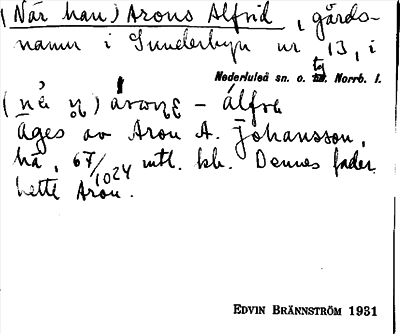 (När han) Arons Alfrid, gårds-
namn i Sunderbyn nr 13, i
Nederluleå sn. o. tg. Norrb. l.
álfrə
Äges av Aron A. Johansson,
hå, 67/1024 mtl. kb. Dennes fader
hette Aron.
EDVIN BRÄNNSTRÖM 1931